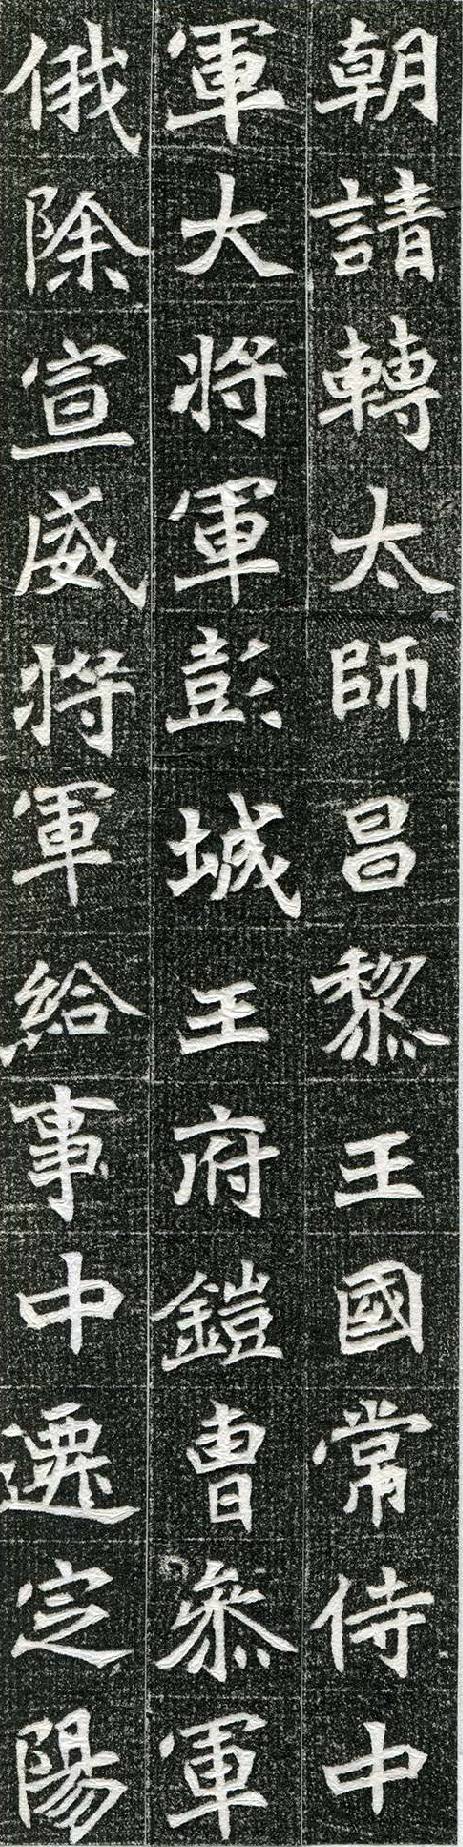 朝請轉太師昌黎王國常侍中
軍大將軍彭城王府鎧曹叅軍
俄除宣威將軍給事中遷定陽